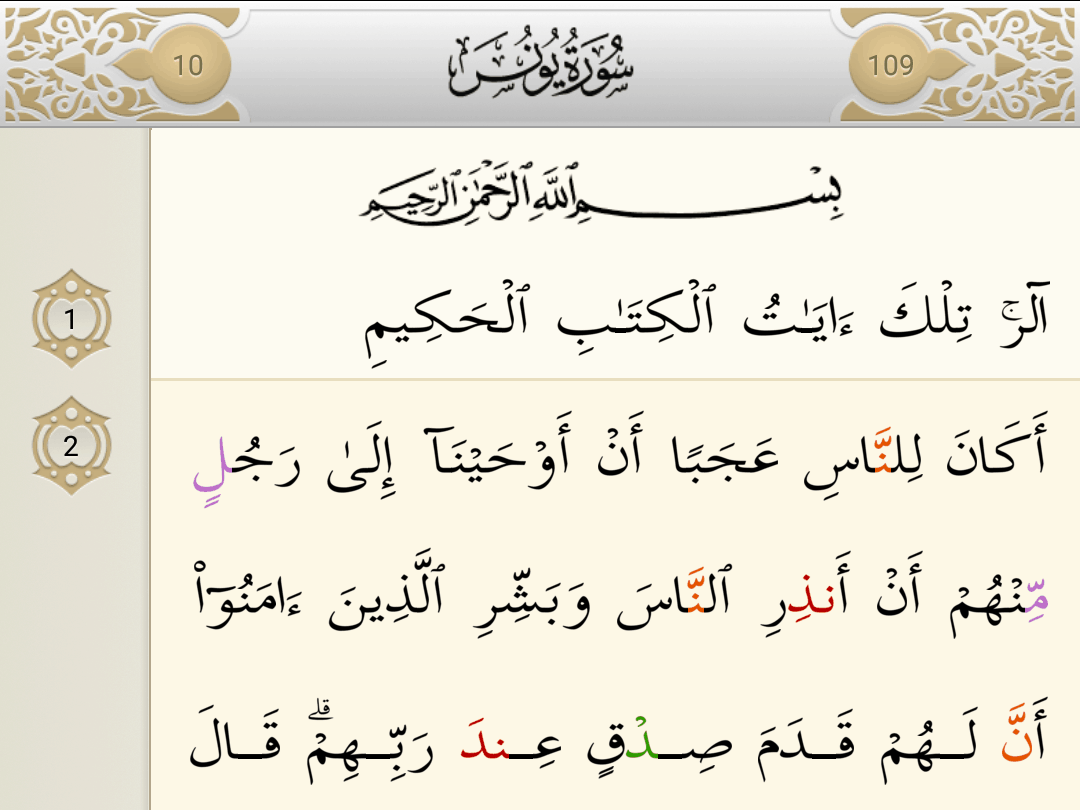 10 سُورَةُ يُونُسَ 109
بِسْمِ ٱللَّهِ ٱلرَّحْمَٰنِ ٱلرَّحِيمِ
1
الٓرۚ تِلْكَ ءَايَـٰتُ ٱلْكِتَـٰبِ ٱلْحَكِيمِ
2
أَكَانَ لِلنَّاسِ عَجَبًا أَنْ أَوْحَيْنَآ إِلَىٰ رَجُلٍ
مِّنْهُمْ أَنْ أَنذِرِ ٱلنَّاسَ وَبَشِّرِ ٱلَّذِينَ ءَامَنُوٓا۟
أَنَّ لَهُمْ قَدَمَ صِدْقٍ عِندَ رَبِّهِمْ ۗ قَالَ